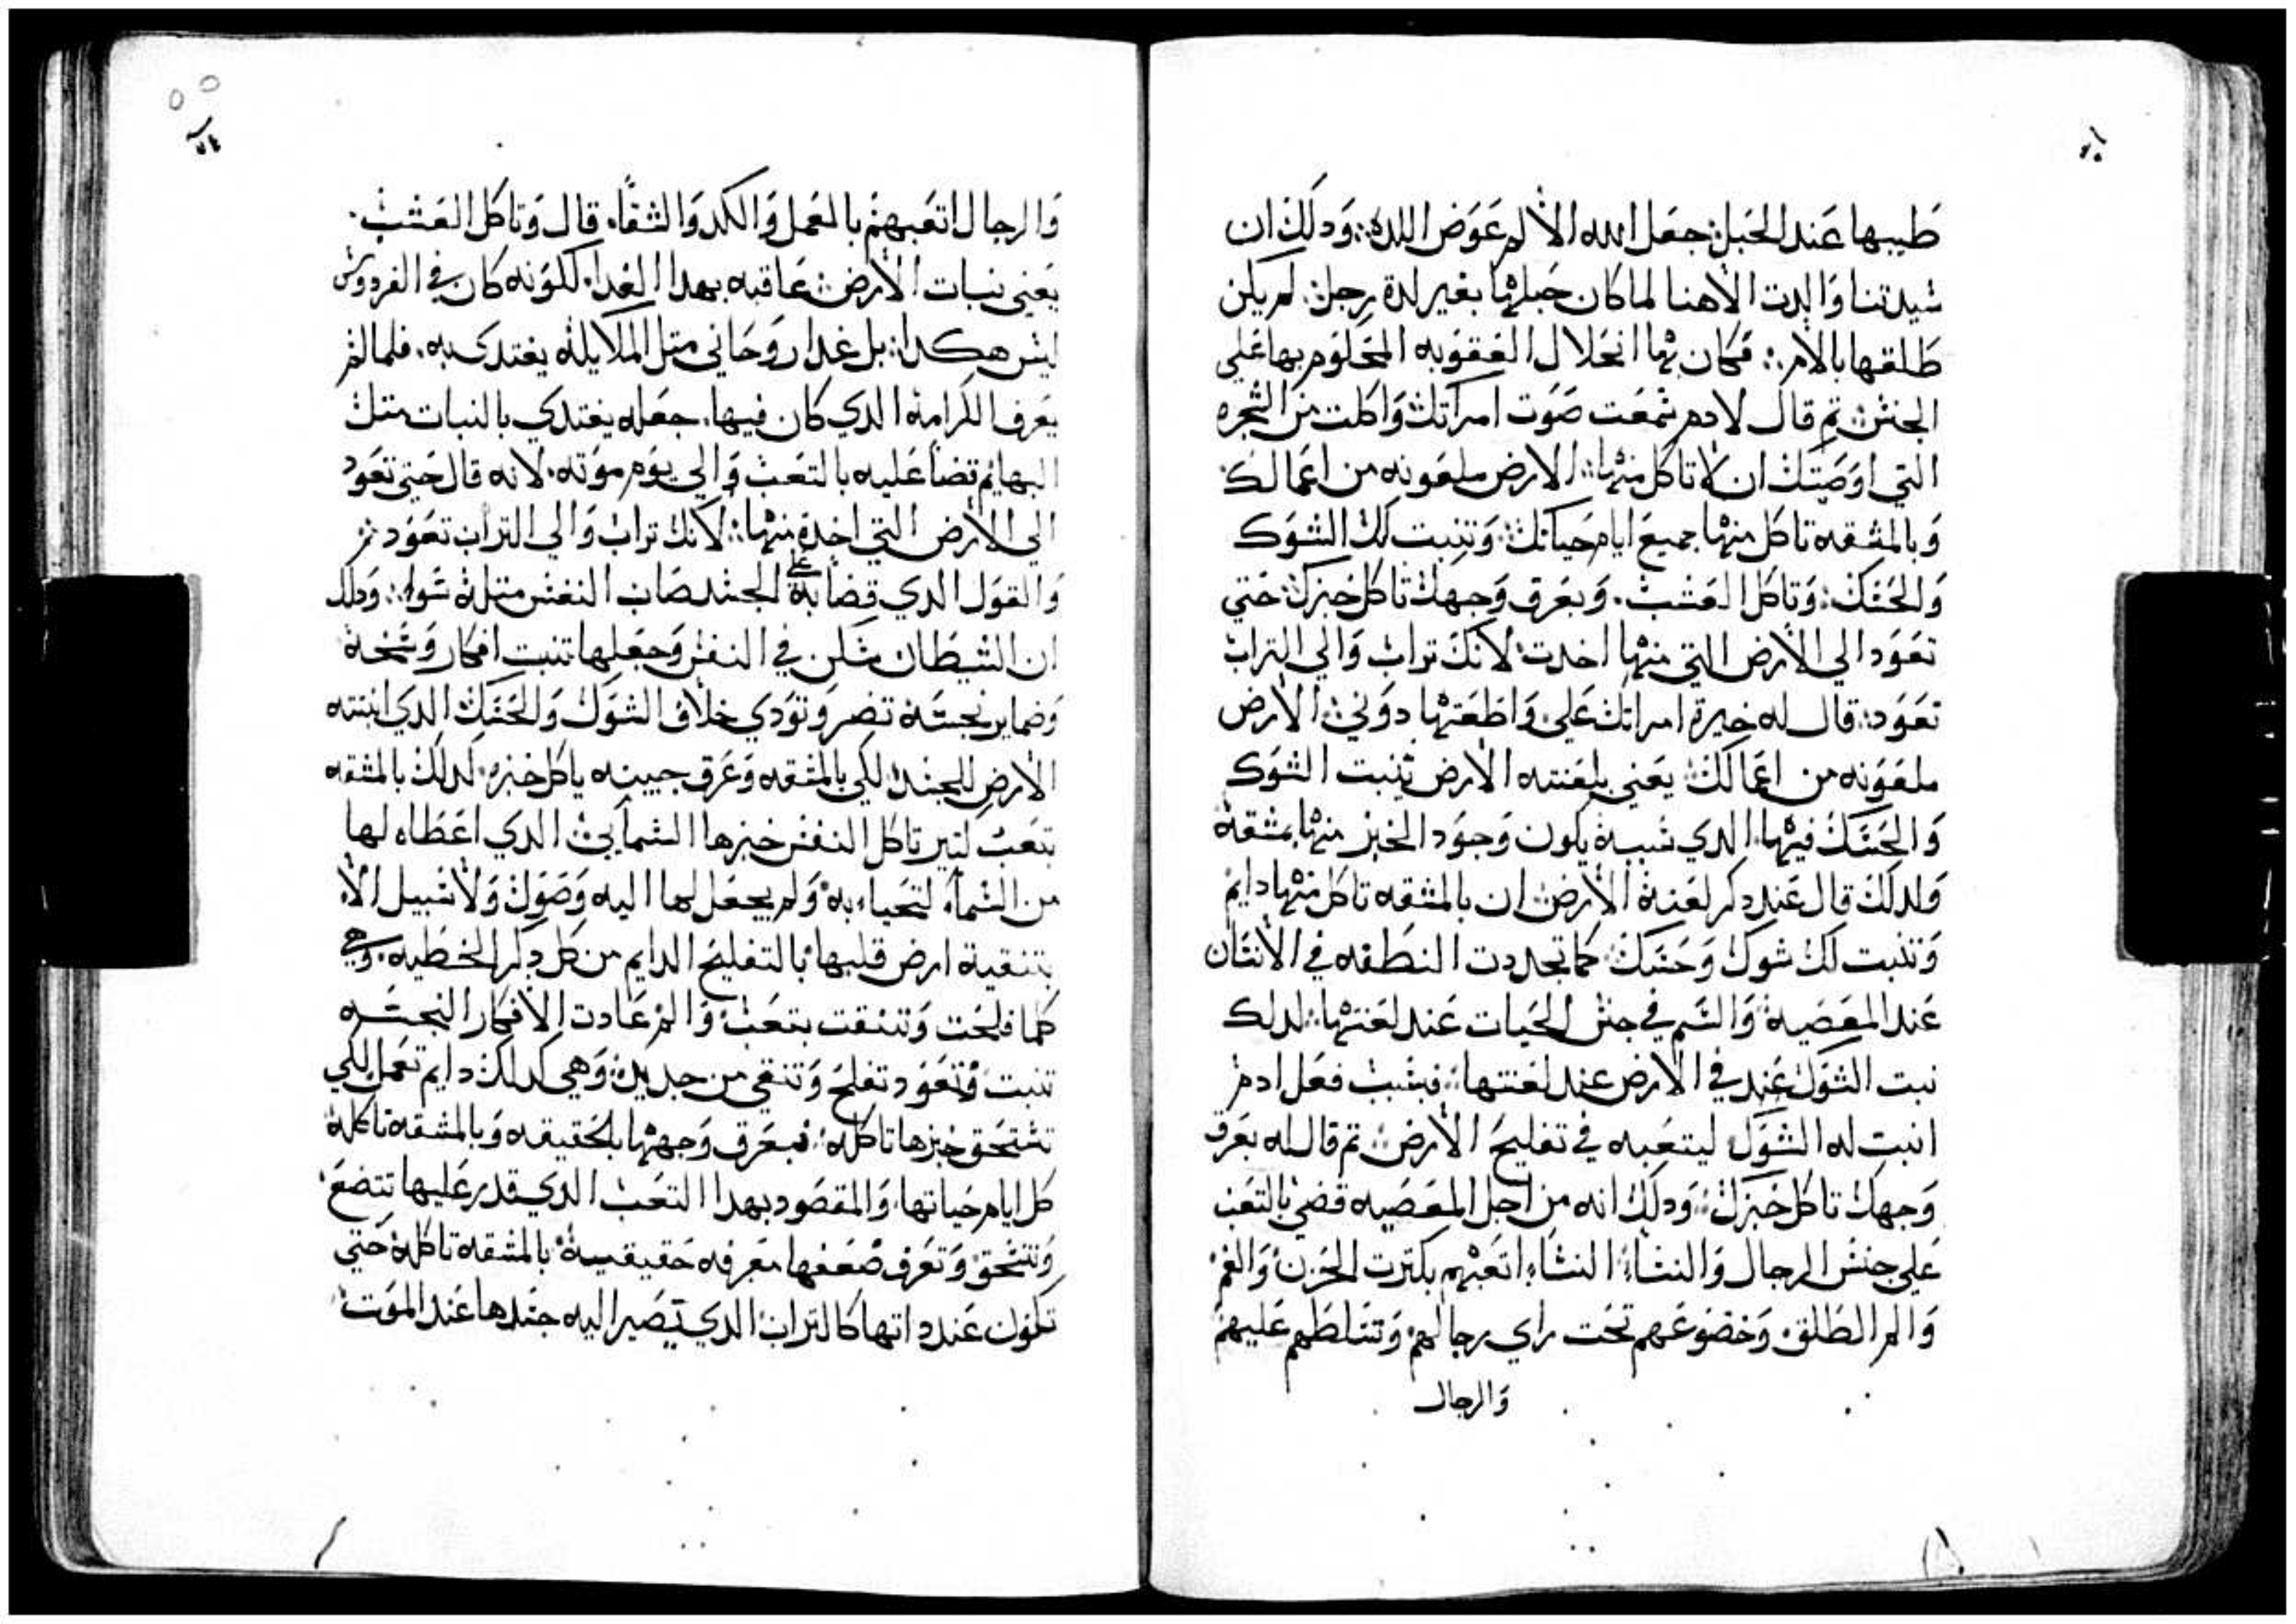 طيبها عند الحبل: جعل الله الالم عوض اللده: ودلك ان
شيدتنا والدت الاهنا لما كان حبلها بغير لدة رجل: لم يكن
طلقها بالام: فكان بها انحلال العقوبه المحكوم بها علي
الجنش: تم قال لادم شمعت صوت امراتك واكلت من الشجره
التي اوصيتك ان لا تاكل منها: الارض ملعونه من اعمالك
وبالمشقه تاكل منها جميع ايام حياتك: وتنبت لك الشوك
والحشك: وتاكل العشب. وبعرق وجهك تاكل خبزك: حتي
تعود الي الارض التي منها اخدت: لانك تراب والي التراب
تعود: قال له خيرة امراتك علي واطعتها دوني: الارض
ملعونه من اعمالك: يعني بلعنته الارض تنبت الشوك
والحشك فيها: الدي شببه يكون وجود الخبز منها بمشقة
ولدلك قال عند دكر لعنة الارض: ان بالمشقه تاكل منها دايم
وتنبت لك شوك وحشك: كما تجددت النطفه في الانشان
عند المعصية والشم في جنش الحيات عند لعنتها: لدلك
نبت الشوك عند في الارض عند لعنتها: فبشبب فعل ادم
انبت له الشوك ليتعبه في تفليح الارض: تم قال له بعرق
وجهك تاكل خبزك: ودلك انه من اجل المعصيه قضي بالتعب
علي جنش الرجال والنشاء: النشاء اتعبهم بكترت الحزن والغم
والم الطلق: وخضوعهم تحت راي رجالهم وتشلطهم عليهم
والرجال
والرجال اتعبهم بالعمل والكد والشقا. قال وتاكل العشب.
يعني نبات الارض: عاقبه بهدا الغدا. لكونه كان في الفردوش
ليش هكدا: بل غدا روحاني متل الملايكة يغتدي به. فلما لم
يعرف الكرامة الدي كان فيها. جعله يغتدي بالنبات متل
البهايم قضا عليه بالتعب والي يوم موته. لانه قال حتي تعود
الي الارض التي اخدة منها: لانك تراب والي التراب تعود:
والقول الدي قضا به علي الجشد صاب النفش متله شوا: ودلك
ان الشيطان شكن في النفش وجعلها تنبت افكار وشخة
وضماير نجشة تضر وتودي خلاف الشوك والحشك الدي انبتته
الارض للجشد: لكي بالمشقه وعرق جبينه ياكل خبزه: لدلك بالمشقه
بتعب كتير تاكل النفش خبزها الشمايي: الدي اعطاه لها
من الشماء لتحياء به: ولم يجعل لها اليه وصول ولا شبيل الا
بتنقية ارض قلبها: بالتفليح الدايم من كل دكر الخطيه. وهي
كلما فلحت وتنقت بتعب والم عادت الافكار النجشه
تنبت: وتعود تفلح وتنقي من جديد: وهي كدلك دايم تعمل لكي
تشتحق خبزها تاكله: فبعرق وجهها بالحقيقه وبالمشقه تاكله
كل ايام حياتها: والمقصود بهدا التعب الدي قدر عليها تتضع
وتنشحق وتعرف ضعفها معرفه حقيقية: بالمشقه تاكله حتي
تكون عند داتها كالتراب الدي يصير اليه جشدها عند الموت